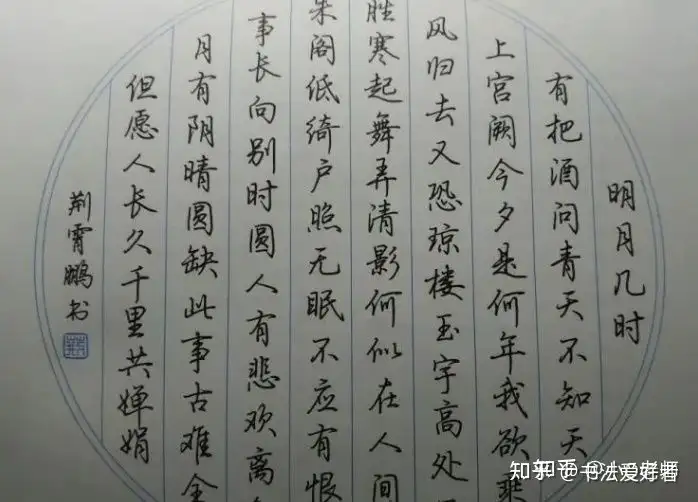 明月几时
有把酒问青天不知天
上宫阙今夕是何年我欲乘
风归去又恐琼楼玉宇高处
胜寒起舞弄清影何似在人间
朱阁低绮户照无眠不应有恨
事长向别时圆人有悲欢离
月有阴晴圆缺此事古难全
但愿人长久千里共婵娟
荆霄鹏书
知乎
书法爱好者